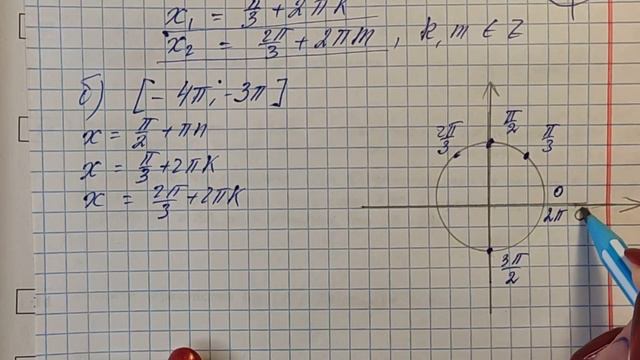 x₁ = π/3 + 2πk
x₂ = 2π/3 + 2πm, k, m ∈ Z
б) [-4π; -3π]
x = π/2 + πn
x = π/3 + 2πk
x = 2π/3 + 2πk
2π/3
π/2
π/3
0
2π
3π/2